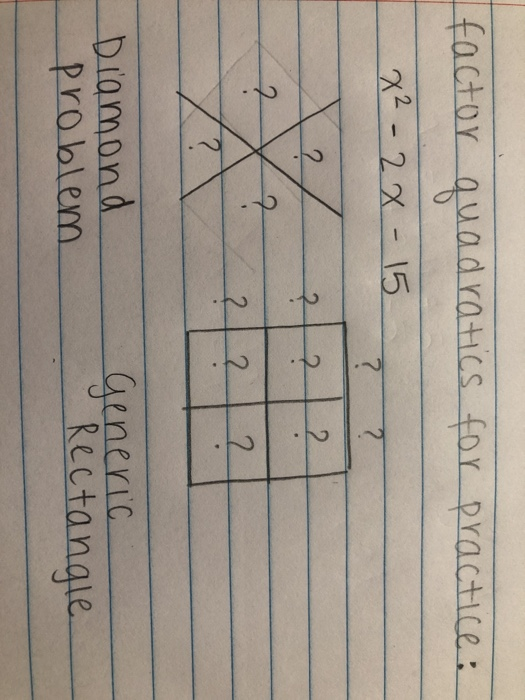 factor quadratics for practice:
x² - 2x - 15
? ?
? ? ? ?
? ? ? ? ?
?
Diamond problem
Generic Rectangle